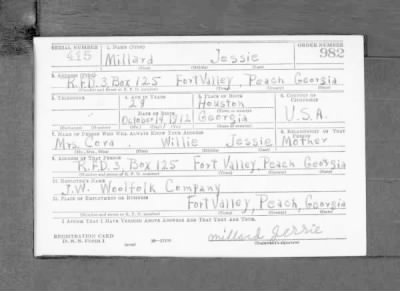 SERIAL NUMBER 1. NAME (Print) ORDER NUMBER
415 Millard Jessie 982
(First) (Middle) (Last)
2. ADDRESS (Print)
R.F.D. 3, Box 125 Fort Valley, Peach Georgia
(Number and street or R. F. D. number) (Town) (County) (State)
3. TELEPHONE 4. AGE IN YEARS 5. PLACE OF BIRTH 6. COUNTRY OF CITIZENSHIP
Houston
DATE OF BIRTH
October 19, 1912 Georgia U.S.A.
(Exchange) (Number) (Mo.) (Day) (Yr.) (State or country)
7. NAME OF PERSON WHO WILL ALWAYS KNOW YOUR ADDRESS 8. RELATIONSHIP OF THAT PERSON
Mrs. Cora Willie Jessie Mother
(Mr., Mrs., Miss) (First) (Middle) (Last)
9. ADDRESS OF THAT PERSON
R.F.D. 3, Box 125 Fort Valley, Peach Georgia
(Number and street or R. F. D. number) (Town) (County) (State)
10. EMPLOYER'S NAME
J.W. Woolfolk Company
11. PLACE OF EMPLOYMENT OR BUSINESS
Fort Valley, Peach, Georgia
(Number and street or R. F. D. number) (Town) (County) (State)
I AFFIRM THAT I HAVE VERIFIED ABOVE ANSWERS AND THAT THEY ARE TRUE.
REGISTRATION CARD
D. S. S. FORM 1 (over) millard Jessie
(Registrant's signature)